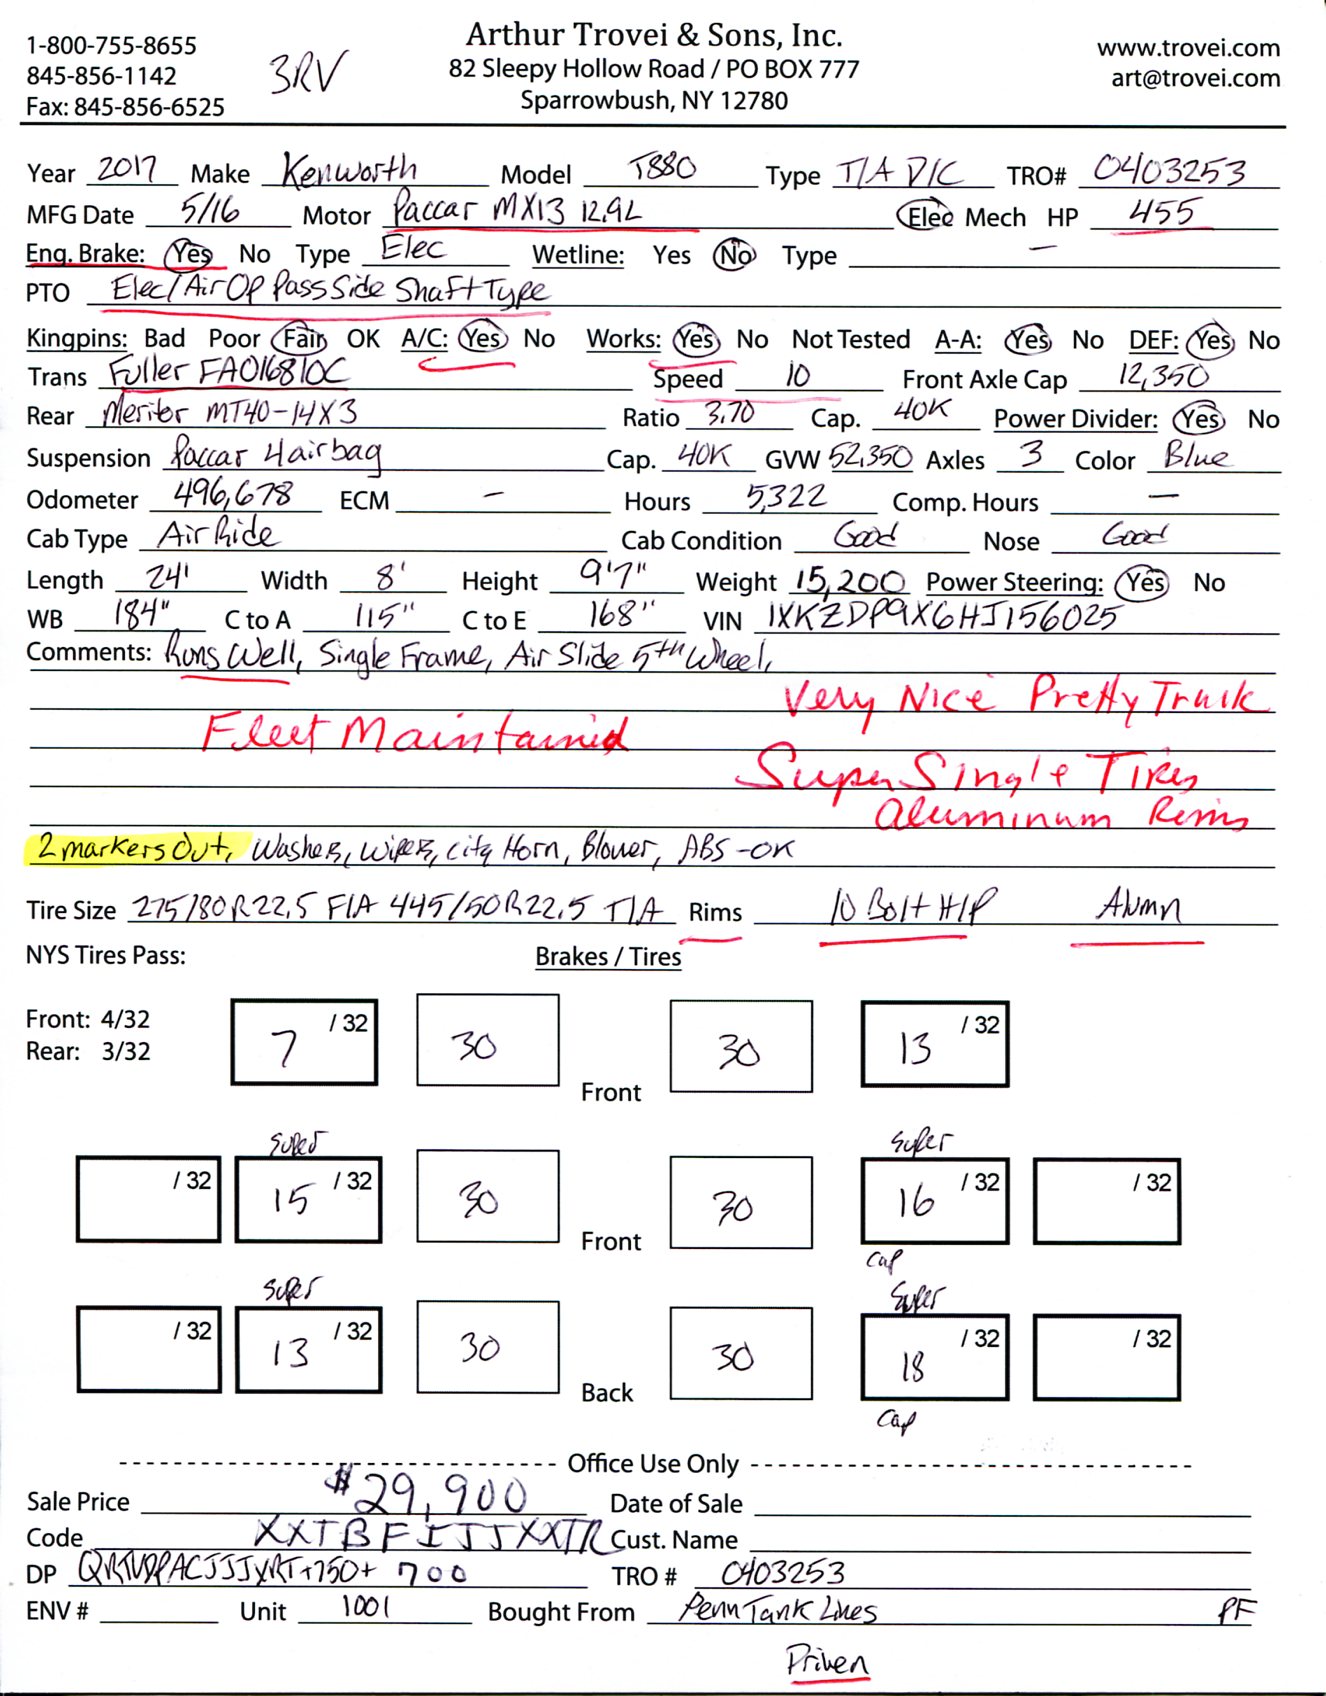 1-800-755-8655
845-856-1142
Fax: 845-856-6525
3RV
Arthur Trovei & Sons, Inc.
82 Sleepy Hollow Road / PO BOX 777
Sparrowbush, NY 12780
www.trovei.com
art@trovei.com
Year 2017 Make Kenworth Model T880 Type T/A D/C TRO# 0403253
MFG Date 5/16 Motor Paccar MX13 12.9L Elec Mech HP 455
Eng. Brake: Yes No Type Elec Wetline: Yes No Type —
PTO Elec/Air Op Pass Side Shaft Type
Kingpins: Bad Poor Fair OK A/C: Yes No Works: Yes No Not Tested A-A: Yes No DEF: Yes No
Trans Fuller FAO16810C Speed 10 Front Axle Cap 12,350
Rear Meritor MT40-14X3 Ratio 3.70 Cap. 40K Power Divider: Yes No
Suspension Paccar 4 airbag Cap. 40K GVW 52,350 Axles 3 Color Blue
Odometer 496,678 ECM — Hours 5,322 Comp. Hours —
Cab Type Air Ride Cab Condition Good Nose Good
Length 24' Width 8' Height 9'7" Weight 15,200 Power Steering: Yes No
WB 184" C to A 115" C to E 168" VIN 1XKZDP9X6HJ156025
Comments: Runs Well, Single Frame, Air Slide 5th Wheel,
Very Nice Pretty Truck
Fleet Maintained
Super Single Tires
Aluminum Rims
2 markers Out, Washer, Wiper, City Horn, Blower, ABS-OK
Tire Size 275/80R22.5 F/A 445/50R22.5 T/A Rims 10 Bolt H/P Alumn
NYS Tires Pass: Brakes / Tires
Front: 4/32
Rear: 3/32
7 /32 30 Front 30 13 /32
Super Super
/32 15 /32 30 Front 30 16 /32 /32
Cap
Super Super
/32 13 /32 30 Back 30 18 /32 /32
Cap
Office Use Only
Sale Price $29,900 Date of Sale
Code XXTBFIJJXXTR Cust. Name
DP +750+ 700 TRO # 0403253
ENV # Unit 1001 Bought From Penn Tank Lines PF
Driven